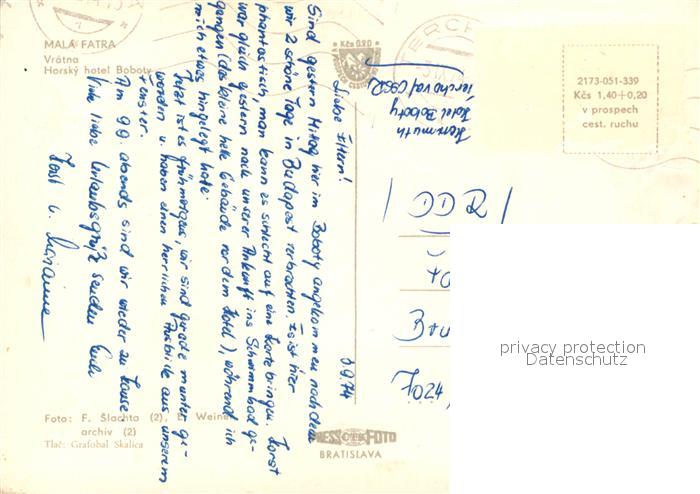 MALÁ FATRA
Vrátna
Horský hotel Boboty
Kčs 0,90
2173-051-339
Kčs 1,40+0,20
v prospech
cest. ruchu
Hotel Boboty
Terchova/ČSSR
3.9.74
Liebe Eltern!
Sind gestern Mittag hier im Boboty angekommen nachdem
wir 2 schöne Tage in Budapest verbrachten. Es ist hier
phantastisch, man kann es schlecht auf eine Karte bringen. Horst
war gleich gestern nach unserer Ankunft ins Schwimmbad ge-
gangen (das kleine helle Gebäude vor dem Hotel), während ich
mich etwas hingelegt habe.
Jetzt ist es frühmorgens, wir sind gerade munter ge-
worden u. haben einen herrlichen Ausblick aus unserem
Fenster.
Am 9.9. abends sind wir wieder zu Hause.
Viele liebe Urlaubsgrüße senden Euch
Horst u. Marianne
7024
privacy protection
Datenschutz
Foto: F. Šlachta (2), L. Weiner
archív (2)
Tlač: Grafobal Skalica
PRESSFOTO
BRATISLAVA